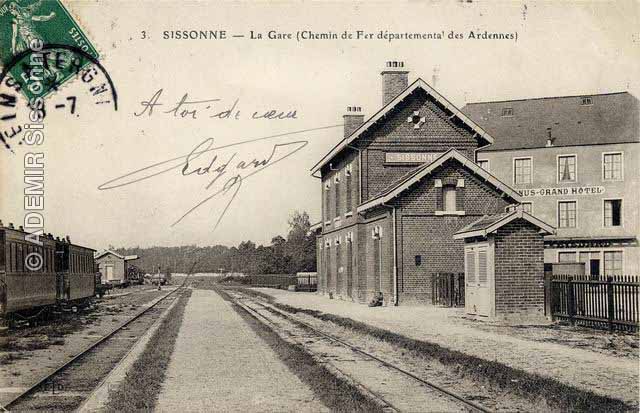 3. SISSONNE — La Gare (Chemin de Fer départemental des Ardennes)
A toi de cœur
Edgard
SISSONNE
NUS-GRAND HÔTEL
© ADEMIR Sissonne